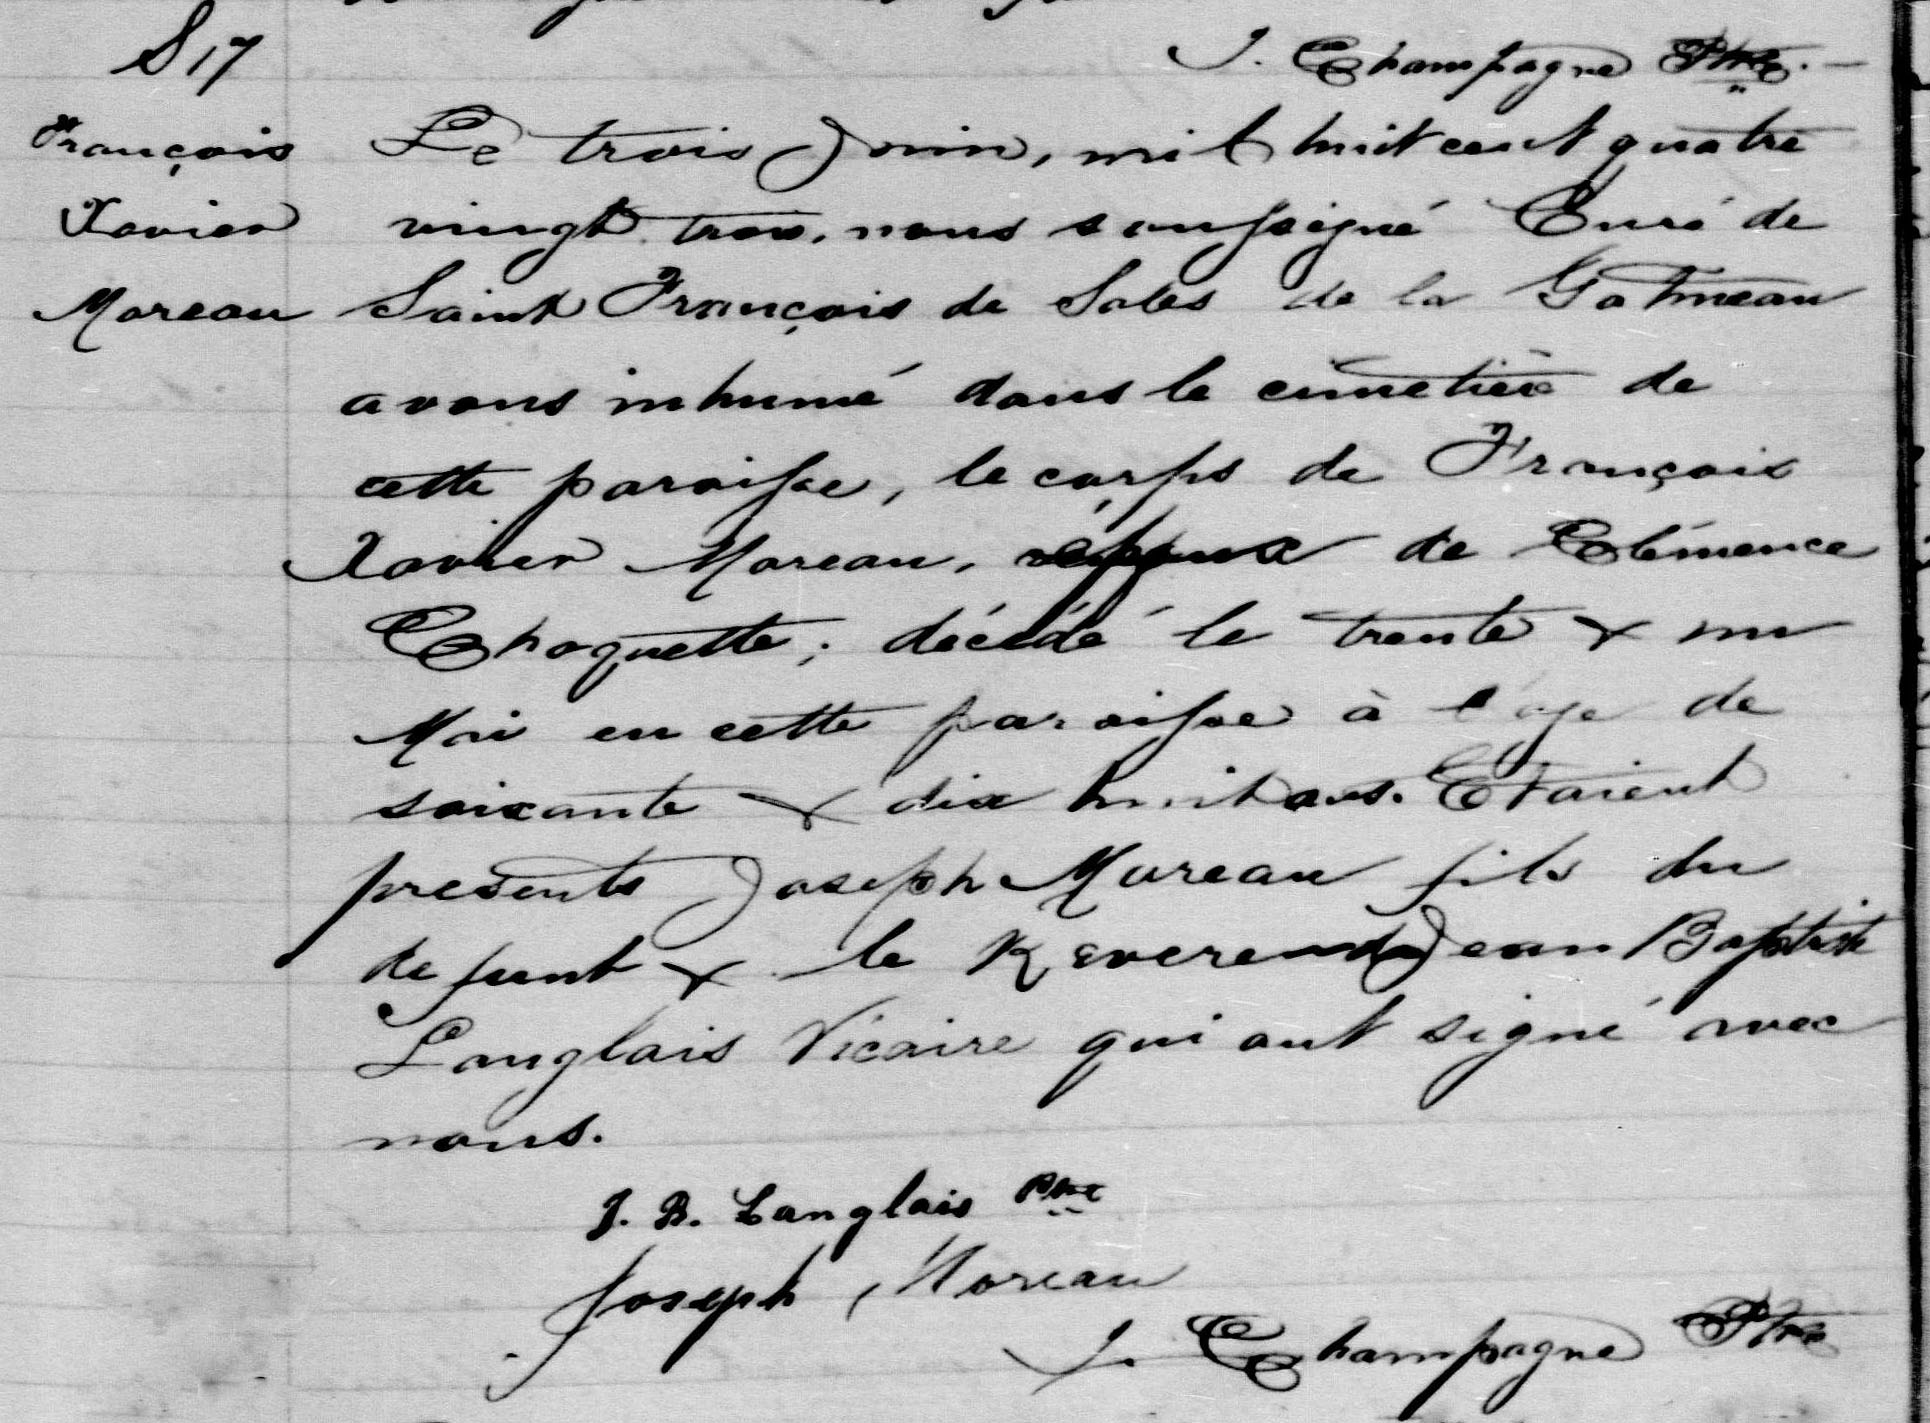 S 17
J. Champagne Ptre.
François
Xavier
Moreau
Le trois Juin, mil huit cent quatre
vingt trois, nous soussigné Curé de
Saint François de Sales de la Gatineau
avons inhumé dans le cimetière de
cette paroisse, le corps de François
Xavier Moreau, époux de Clémence
Choquette; décédé le trente & un
Mai en cette paroisse à l'age de
soixante & dix huit ans. Etaient
presents Joseph Moreau fils du
defunt & le Reverend Jean Baptiste
Langlais Vicaire qui ont signé avec
nous.
J. B. Langlais Ptre
Joseph Moreau
J. Champagne Ptre